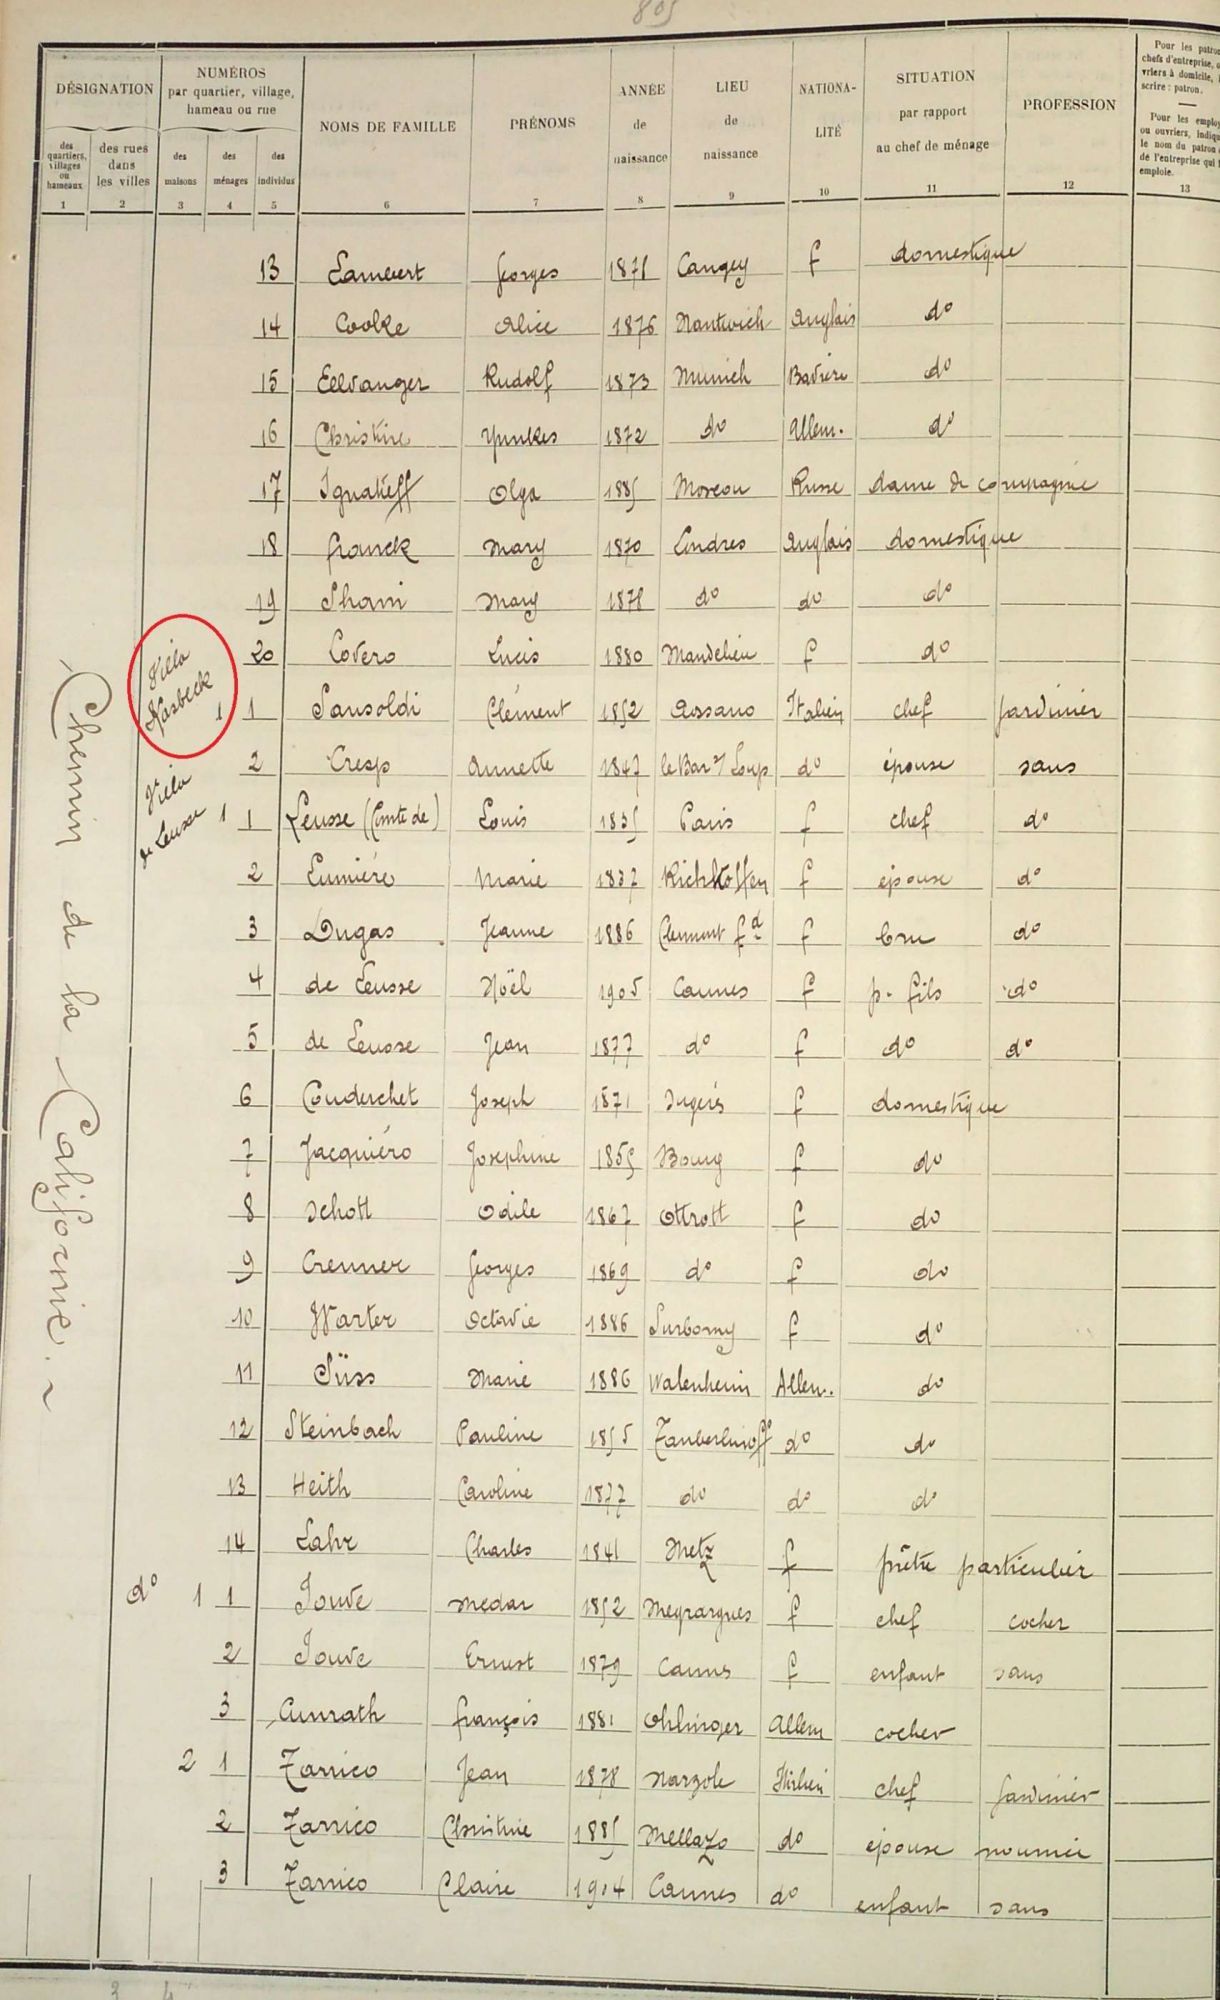 805
DÉSIGNATION
NUMÉROS par quartier, village, hameau ou rue
NOMS DE FAMILLE
PRÉNOMS
ANNÉE de naissance
LIEU de naissance
NATIONA-LITÉ
SITUATION par rapport au chef de ménage
PROFESSION
Pour les patro
chefs d'entreprise, o
vriers à domicile, i
scrire : patron.
Pour les employ
ou ouvriers, indiqu
le nom du patron
de l'entreprise qui
emploie.
des quartiers, villages ou hameaux
des rues dans les villes
des maisons
des ménages
des individus
1 2 3 4 5 6 7 8 9 10 11 12 13
Chemin de la Californie.
13 Lambert Georges 1875 Cangey f domestique
14 Cooke Alice 1876 Nantwich Anglais do
15 Eelvanger Rudolf 1873 Munich Bavière do
16 Christine 1872 do Allem. do
17 Ignatieff Olga 1885 Moscou Russe dame de compagnie
18 Franck Mary 1870 Londres Anglais domestique
19 Mary 1878 do do do
20 Covero Lucis 1880 Mandelieu f do
Villa Kasbeck
1 1 Sansoldi Clément 1852 Italien chef jardinier
2 Cresp Annette 1847 le Bar s/ Loup do épouse sans
Villa de Leusse
1 1 Leusse (Comte de) Louis 1835 Paris f chef do
2 Lumière Marie 1837 f épouse do
3 Dugas Jeanne 1886 Clermont fd f bru do
4 de Leusse Noël 1905 Cannes f p. fils do
5 de Leusse Jean 1877 do f do do
6 Couderchet Joseph 1871 f domestique
7 Jacquiéro Josephine 1855 Bourg f do
8 Schott Odile 1867 Ottrott f do
9 Crenner Georges 1869 do f do
10 Warter Octavie 1886 f do
11 Süss Marie 1886 Walenheim Allem. do
12 Steinbach Pauline 1855 do do
13 Heith Caroline 1877 do do do
14 Lahr Charles 1841 Metz f prêtre particulier
do 1 1 Jouve Medar 1852 Meyrargues f chef cocher
2 Jouve Ernest 1879 Cannes f enfant sans
3 Amrath françois 1881 Allem cocher
2 1 Zanico Jean 1878 Narzole Italien chef jardinier
2 Zanico Christine 1885 Mellazo do épouse
3 Zanico Claire 1904 Cannes do enfant sans
3 4